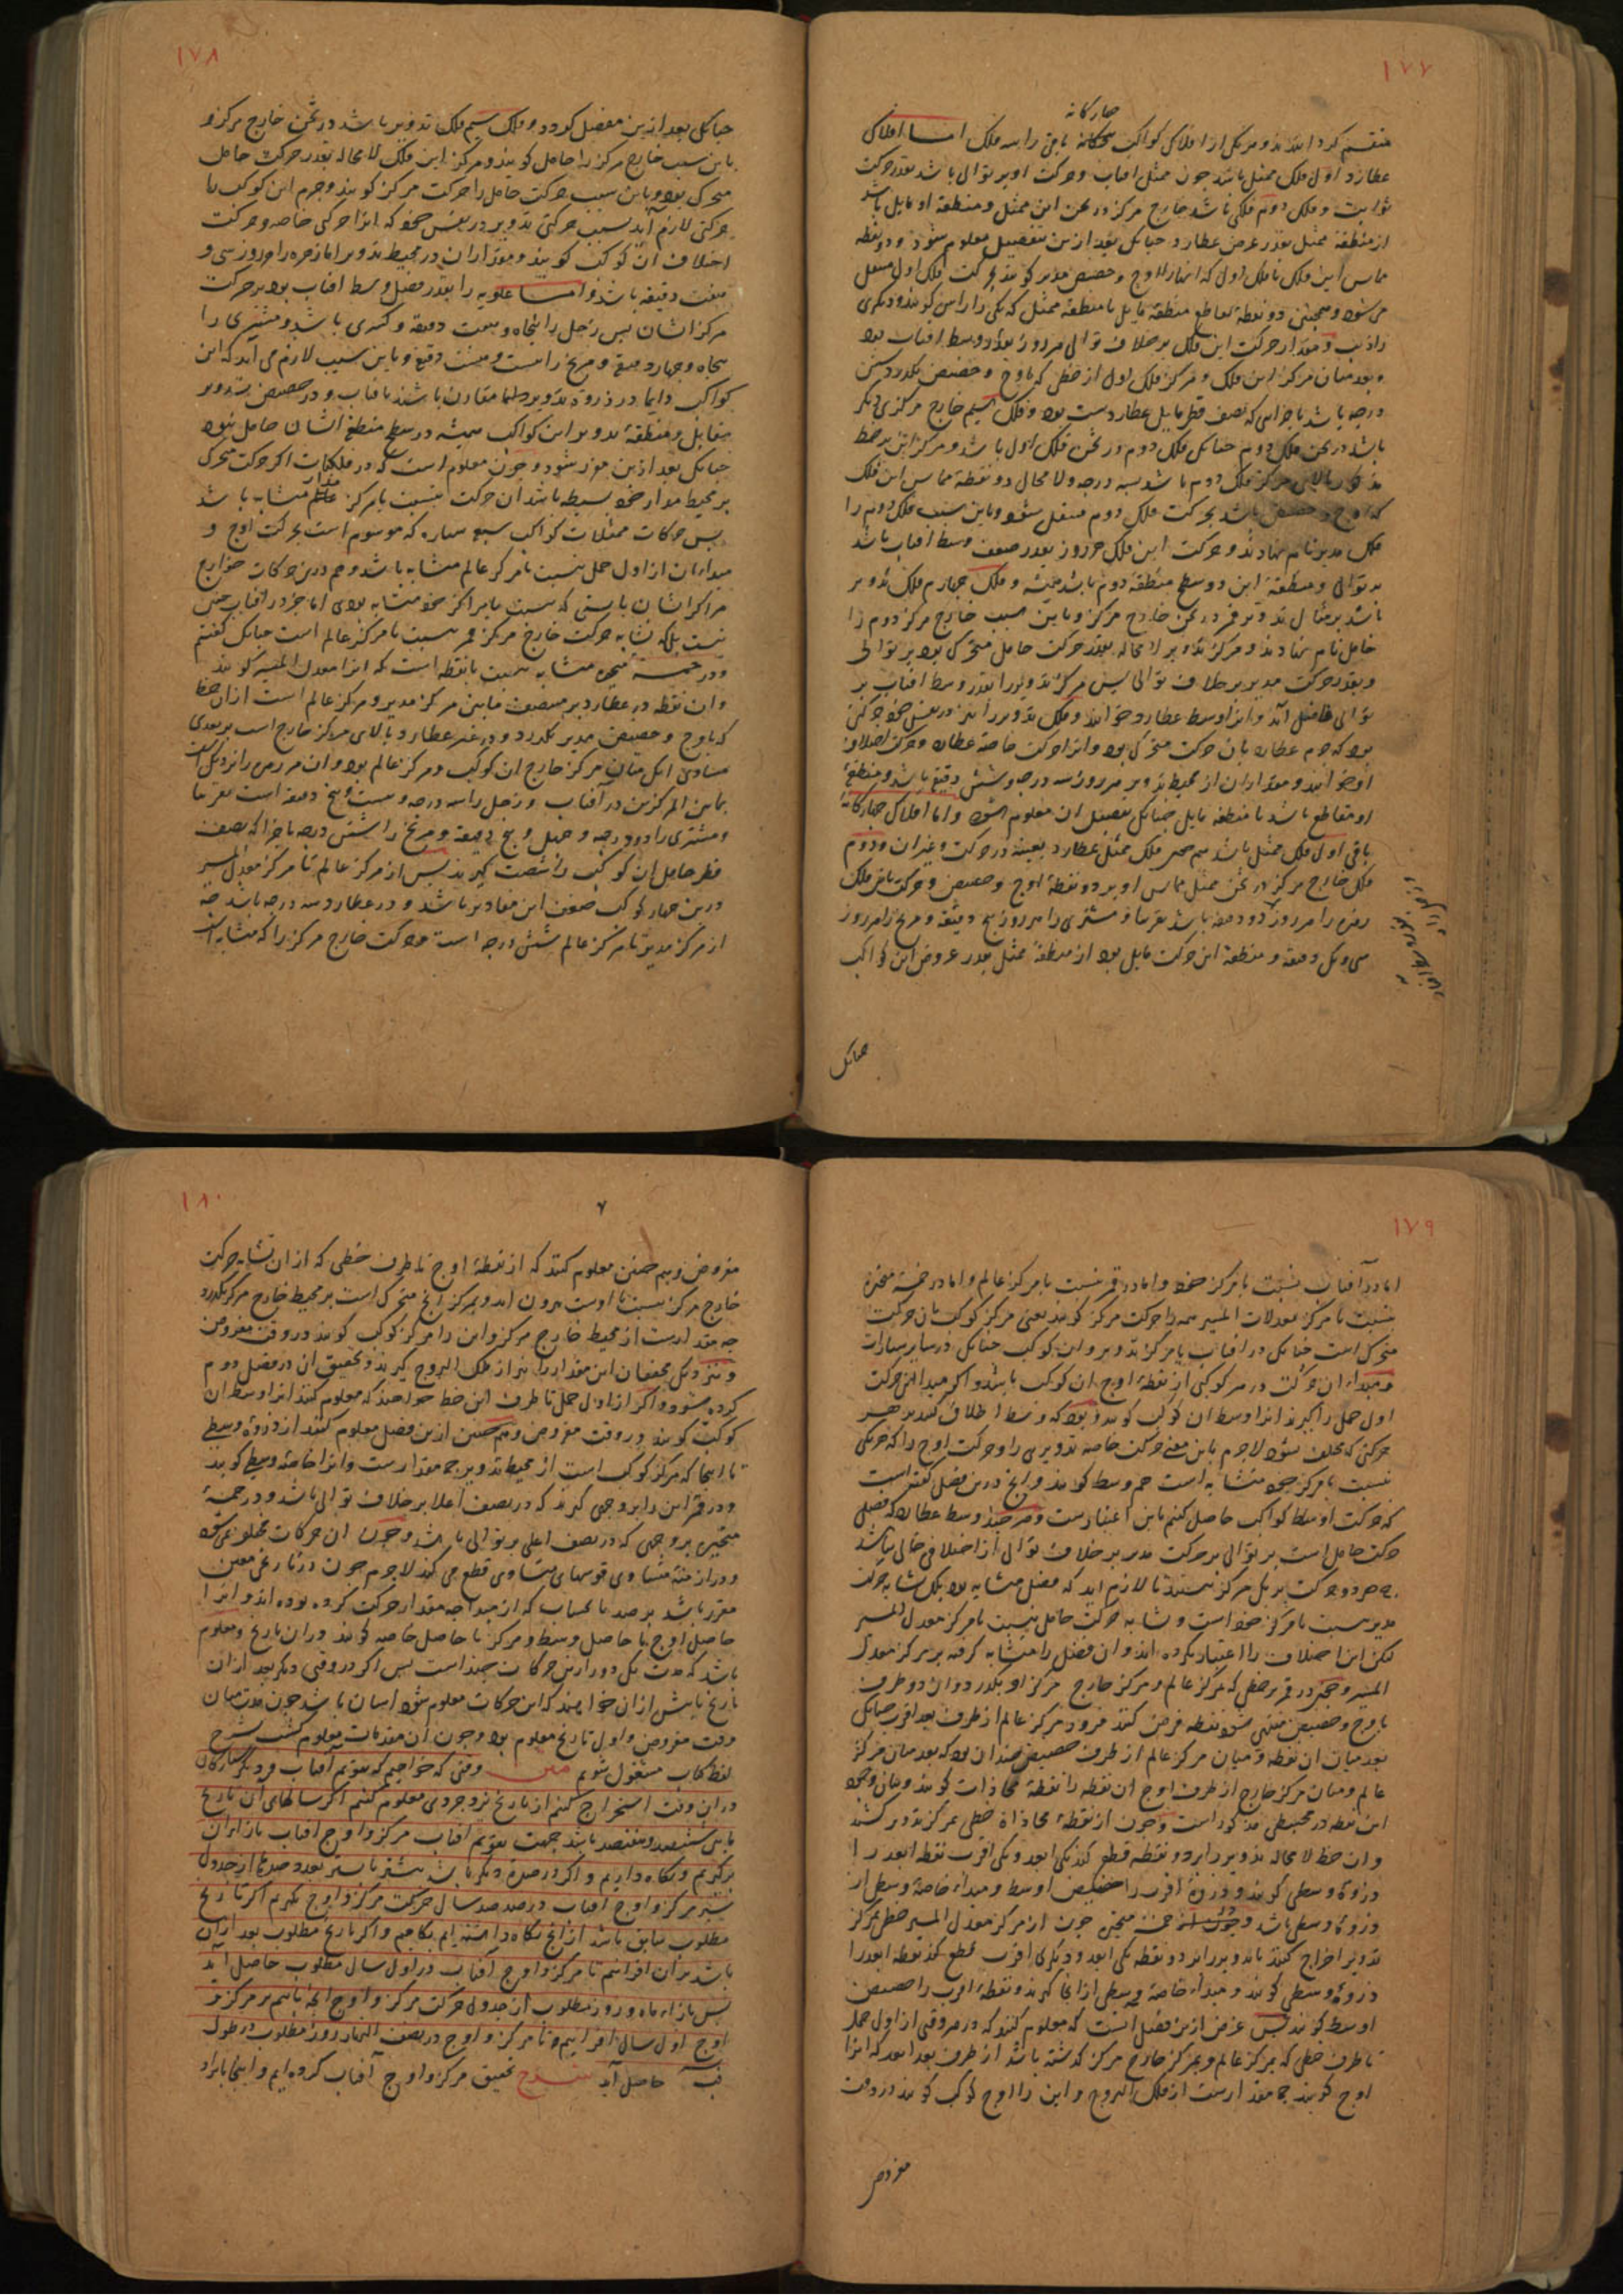 ١٧٧
چهارگانه
منقسم کرده‌اند و هر یکی از افلاک کواکب باقی را سه فلک اما افلاک
عطارد اول فلک ممثل باشد چون ممثل افتاب و حرکت او بر توالی باشد بقدر حرکت
ثوابت و فلک دوم فلکی باشد خارج مرکز در ثخن این ممثل و منطقه او مایل باشد
از منطقه ممثل بقدر عرض عطارد چنانکه بعد ازین بتفصیل معلوم شود و دو نقطه
تماس این فلک با فلک اول که انها را اوج و حضیض مدیر کویند بحرکت فلک اول منتقل
می شود و همچنین دو نقطه تقاطع منطقه مایل با منطقه ممثل که یکی را راس کویند و دیکری
را ذنب و مقدار حرکت این فلک بر خلاف توالی هر روز بقدر وسط افتاب بود
و بعد میان مرکز این فلک و مرکز فلک اول از خطی که باوج و حضیض بکذرد شش
درجه باشد باجزایی که نصف قطر مایل عطارد شصت بود و فلک سیم خارج مرکزی دیکر
باشد در ثخن فلک دوم چنانکه فلک دوم در ثخن فلک اول باشد و مرکز این بر خط
مذکور بالای مرکز فلک دوم باشد بسه درجه و لا محاله دو نقطه تماس این فلک
که اوج و حضیض باشد بحرکت فلک دوم منتقل شود و باین سبب فلک دوم را
فلک مدیر نام نهادند و حرکت این فلک هر روز بقدر ضعف وسط افتاب باشد
بر توالی و منطقه این در سطح منطقه دوم باشد همیشه و فلک چهارم فلک تدویر
باشد بر مثال تدویر قمر در ثخن خارج مرکز و باین سبب خارج مرکز دوم را
حامل نام نهادند و مرکز تدویر لا محاله بقدر حرکت حامل متحرک بود بر توالی
و بقدر حرکت مدیر بر خلاف توالی پس مرکز تدویر را بقدر وسط افتاب بر
توالی فاضل آید و انرا وسط عطارد خوانند و فلک تدویر را نیز در نفس خود حرکتی
بود که جرم عطارد بان حرکت متحرک بود و انرا حرکت خاصه عطارد و حرکت اختلاف
او خوانند و مقدار ان از محیط تدویر هر روز سه درجه و شش دقیقه باشد و منطقه
او مقاطع باشد با منطقه مایل چنانکه تفصیل ان معلوم شود و اما افلاک چهارگانه
باقی اول فلک ممثل باشد همچون فلک ممثل عطارد بعینه در حرکت و غیر ان و دوم
فلک خارج مرکز در ثخن ممثل مماس او بر دو نقطه اوج و حضیض و حرکت این فلک
زحل را هر روز دو دقیقه باشد تقریبا و مشتری را هر روز پنج دقیقه و مریخ را هر روز
سی و یک دقیقه و منطقه این حرکت مایل بود از منطقه ممثل بقدر عروض این کواکب
چنانکه
١٧٨
چنانکه بعد ازین مفصل کردد و فلک سیم فلک تدویر باشد در ثخن خارج مرکز و
باین سبب خارج مرکز را حامل کویند و مرکز این فلک لا محاله بقدر حرکت حامل
متحرک بود و باین سبب حرکت حامل را حرکت مرکز کویند و جرم این کوکب را
حرکتی لازم آید بسبب حرکت تدویر در نفس خود که انرا حرکت خاصه و حرکت
اختلاف ان کوکب کویند و مقدار ان در محیط تدویر اما زهره را هر روز سی و
هفت دقیقه باشد و اما علویه را بقدر فضل وسط افتاب بود بر حرکت
مرکز ایشان پس زحل را پنجاه و هفت دقیقه و کسری باشد و مشتری را
پنجاه و چهار دقیقه و مریخ را بیست و هشت دقیقه و باین سبب لازم می آید که این
کواکب دایما در ذروه تدویر مقارن باشند بافتاب و در حضیض تدویر
مقابل و منطقه تدویر این کواکب همیشه در سطح منطقه ایشان حامل نبود
چنانکه بعد ازین مقرر شود و چون معلوم است که در فلکیات اکر حرکت متحرک
بر محیط مدار خود بسیطه باشد ان حرکت بنسبت با مرکز مدار متشابه باشد
پس حرکات ممثلات کواکب سبعه سیاره که موسوم است بحرکت اوج و
مبداء ان از اول حمل بنسبت با مرکز عالم متشابه باشد و هم درین حرکات خوارج
مراکز ایشان بایستی که بنسبت با مراکز خود متشابه بودی اما جز در افتاب چنین
نیست بلکه تشابه حرکت خارج مرکز قمر بنسبت با مرکز عالم است چنانکه کفتیم
و در خمسه متحیره متشابه بنسبت با نقطه است که انرا معدل المسیر کویند
و ان نقطه در عطارد بر منتصف مابین مرکز مدیر و مرکز عالم است از ان خط
که باوج و حضیض مدیر بکذرد و در غیر عطارد بالای مرکز خارج است بر بعدی
مساوی انکه میان مرکز خارج ان کوکب و مرکز عالم بود
مابین المرکزین در آفتاب و زحل را سه درجه و بیست و پنج دقیقه است تقریبا
و مشتری را دو درجه و چهل و پنج دقیقه و مریخ را شش درجه باجزا که نصف
قطر حامل ان کوکب را شصت کیرند پس از مرکز عالم تا مرکز معدل المسیر
درین چهار کوکب ضعف این مقادیر باشد و در عطارد سه درجه باشد چه
از مرکز مدیر تا مرکز عالم شش درجه است و حرکت خارج مرکز را که متشابه است
١٧٩
اما در آفتاب بنسبت با مرکز خود و اما در قمر بنسبت با مرکز عالم و اما در خمسه متحیره
بنسبت با مرکز معدلات المسیر همه را حرکت مرکز کویند یعنی مرکز کوکب بان حرکت
متحرک است چنانکه در افتاب یا مرکز تدویر و ان کوکب چنانکه در سایر سیارات
و مبداء ان حرکت در هر کوکبی از نقطه اوج ان کوکب باشد و اکر مبدا این حرکت
اول حمل را کیرند انرا وسط ان کوکب کویند و بود که وسط اطلاق کنند بر هر
حرکتی که مختلف نشود لاجرم باین معنی حرکت خاصه تدویری را و حرکت اوج را که حرکتی
بنسبت با مرکز خود متشابه است هم وسط کویند و انچه درین فصل کفته است
که حرکت اوساط کواکب حاصل کنیم باین اعتبارست و هر چند وسط عطارد که فضل
حرکت حامل است بر توالی بر حرکت مدیر بر خلاف توالی از اختلافی خالی نباشد
چه هر دو حرکت بر یک مرکز نیستند تا لازم اید که فضل متشابه بود بلکه تشابه حرکت
مدیر بنسبت با مرکز خود است و تشابه حرکت حامل بنسبت با مرکز معدل المسیر
لکن این اختلاف را اعتبار نکرده‌اند و ان فضل را متشابه کرفته بر مرکز معدل
المسیر و چون در قمر بر خطی که بمرکز عالم و مرکز خارج مرکز او بکذرد و ان دو طرف
باوج و حضیض منتهی شود نقطه فرض کنند فرود مرکز عالم از طرف بعد اقرب چنانکه
بعد میان ان نقطه و میان مرکز عالم از طرف حضیض چندان بود که بعد میان مرکز
عالم و میان مرکز خارج از طرف اوج ان نقطه را نقطه محاذات کویند و بیان وجود
این نقطه در مجسطی مذکور است و چون از نقطه محاذاة خطی بمرکز تدویر کشند
و ان خط لا محاله تدویر را بر دو نقطه قطع کند یکی ابعد و یکی اقرب نقطه ابعد را
ذروة وسطی کویند و ذروة اقرب را حضیض اوسط و مبداء خاصه وسطی از
ذروة وسطی باشد و در خمسه متحیره چون از مرکز معدل المسیر خطی بمرکز
تدویر اخراج کنند تا تدویر را بر دو نقطه یکی ابعد و دیکری اقرب قطع کند نقطه ابعد را
ذروة وسطی کویند و مبداء خاصه وسطی از انجا کیرند و نقطه اقرب را حضیض
اوسط کویند پس غرض ازین فصل انست که معلوم کنند که در هر وقتی از اول حمل
تا طرف خطی که بمرکز عالم و بمرکز خارج مرکز کذشته باشد از طرف بعد ابعد که انرا
اوج کویند چه مقدارست از فلک البروج و این را اوج کوکب کویند در وقت
مفروض
١٨٠
مفروض و هم چنین معلوم کنند که از نقطه اوج تا طرف خطی که از ان تشابه حرکت
خارج مرکز بنسبت با اوست بیرون اید و بمرکز انچه متحرک است بر محیط خارج مرکز بکذرد
چه مقدارست از محیط خارج مرکز و این را مرکز کوکب کویند در وقت مفروض
و نزدیک محققان این مقدار را نیز از فلک البروج کیرند و تحقیق ان در فصل دوم
کرده شود و اکر از اول حمل تا طرف این خط خواهند که معلوم کنند انرا وسط ان
کوکب کویند در وقت مفروض و هم چنین ازین فصل معلوم کنند از ذروة وسطی
تا انجا که مرکز کوکب است از محیط تدویر چه مقدارست و انرا خاصه وسطی کویند
و در قمر این را بر وجهی کیرند که در نصف اعلا بر خلاف توالی باشد و در خمسه
متحیره بر وجهی که در نصف اعلی بر توالی باشد و چون ان حرکات مختلف نمی شود
و در ازمنه متساوی قوسهای متساوی قطع می کند لاجرم چون در تاریخی معین
مقرر باشد برصد یا بحساب که از مبدا چه مقدار حرکت کرده بوده‌اند و انرا
حاصل اوج یا حاصل وسط و مرکز یا حاصل خاصه کویند در ان تاریخ و معلوم
باشد که مدت یک دور ازین حرکات چند است پس اکر در وقتی دیکر بعد از ان
تاریخ یا پیش از ان خواهند که این حرکات معلوم شود اسان باشد چون مدت میان
وقت مفروض و اول تاریخ معلوم بود و چون ان مقدمات معلوم کشت بشرح
لفظ کتاب مشغول شویم متن وقتی که خواهیم که تقویم آفتاب و دیکر ستارکان
در ان وقت استخراج کنیم از تاریخ یزدجردی معلوم کنیم اکر سالهای ان تاریخ
میان ششصد و هفتصد باشد جهت تقویم افتاب مرکز و اوج افتاب بازاء ان
برکیریم و نکاه داریم و اکر در صدی دیکر باشد بیشتر یا کمتر بعدد صدها از جدول
سیر مرکز و اوج افتاب در صد صد سال حرکت مرکز و اوج بکیریم اکر تاریخ
مطلوب سابق باشد از انچه نکاه داشته‌ایم بکاهیم و اکر تاریخ مطلوب بعد از ان
باشد بر ان افزاییم تا مرکز و اوج آفتاب در اول سال مطلوب حاصل آید
پس بازاء ماه و روز مطلوب از جدول حرکت مرکز و اوج انچه یابیم بر مرکز و
اوج اول سال افزاییم تا مرکز و اوج در نصف النهار روز مطلوب در طول
حاصل آید شرح تحقیق مرکز و اوج آفتاب کرده‌ایم و اینجا بایراد